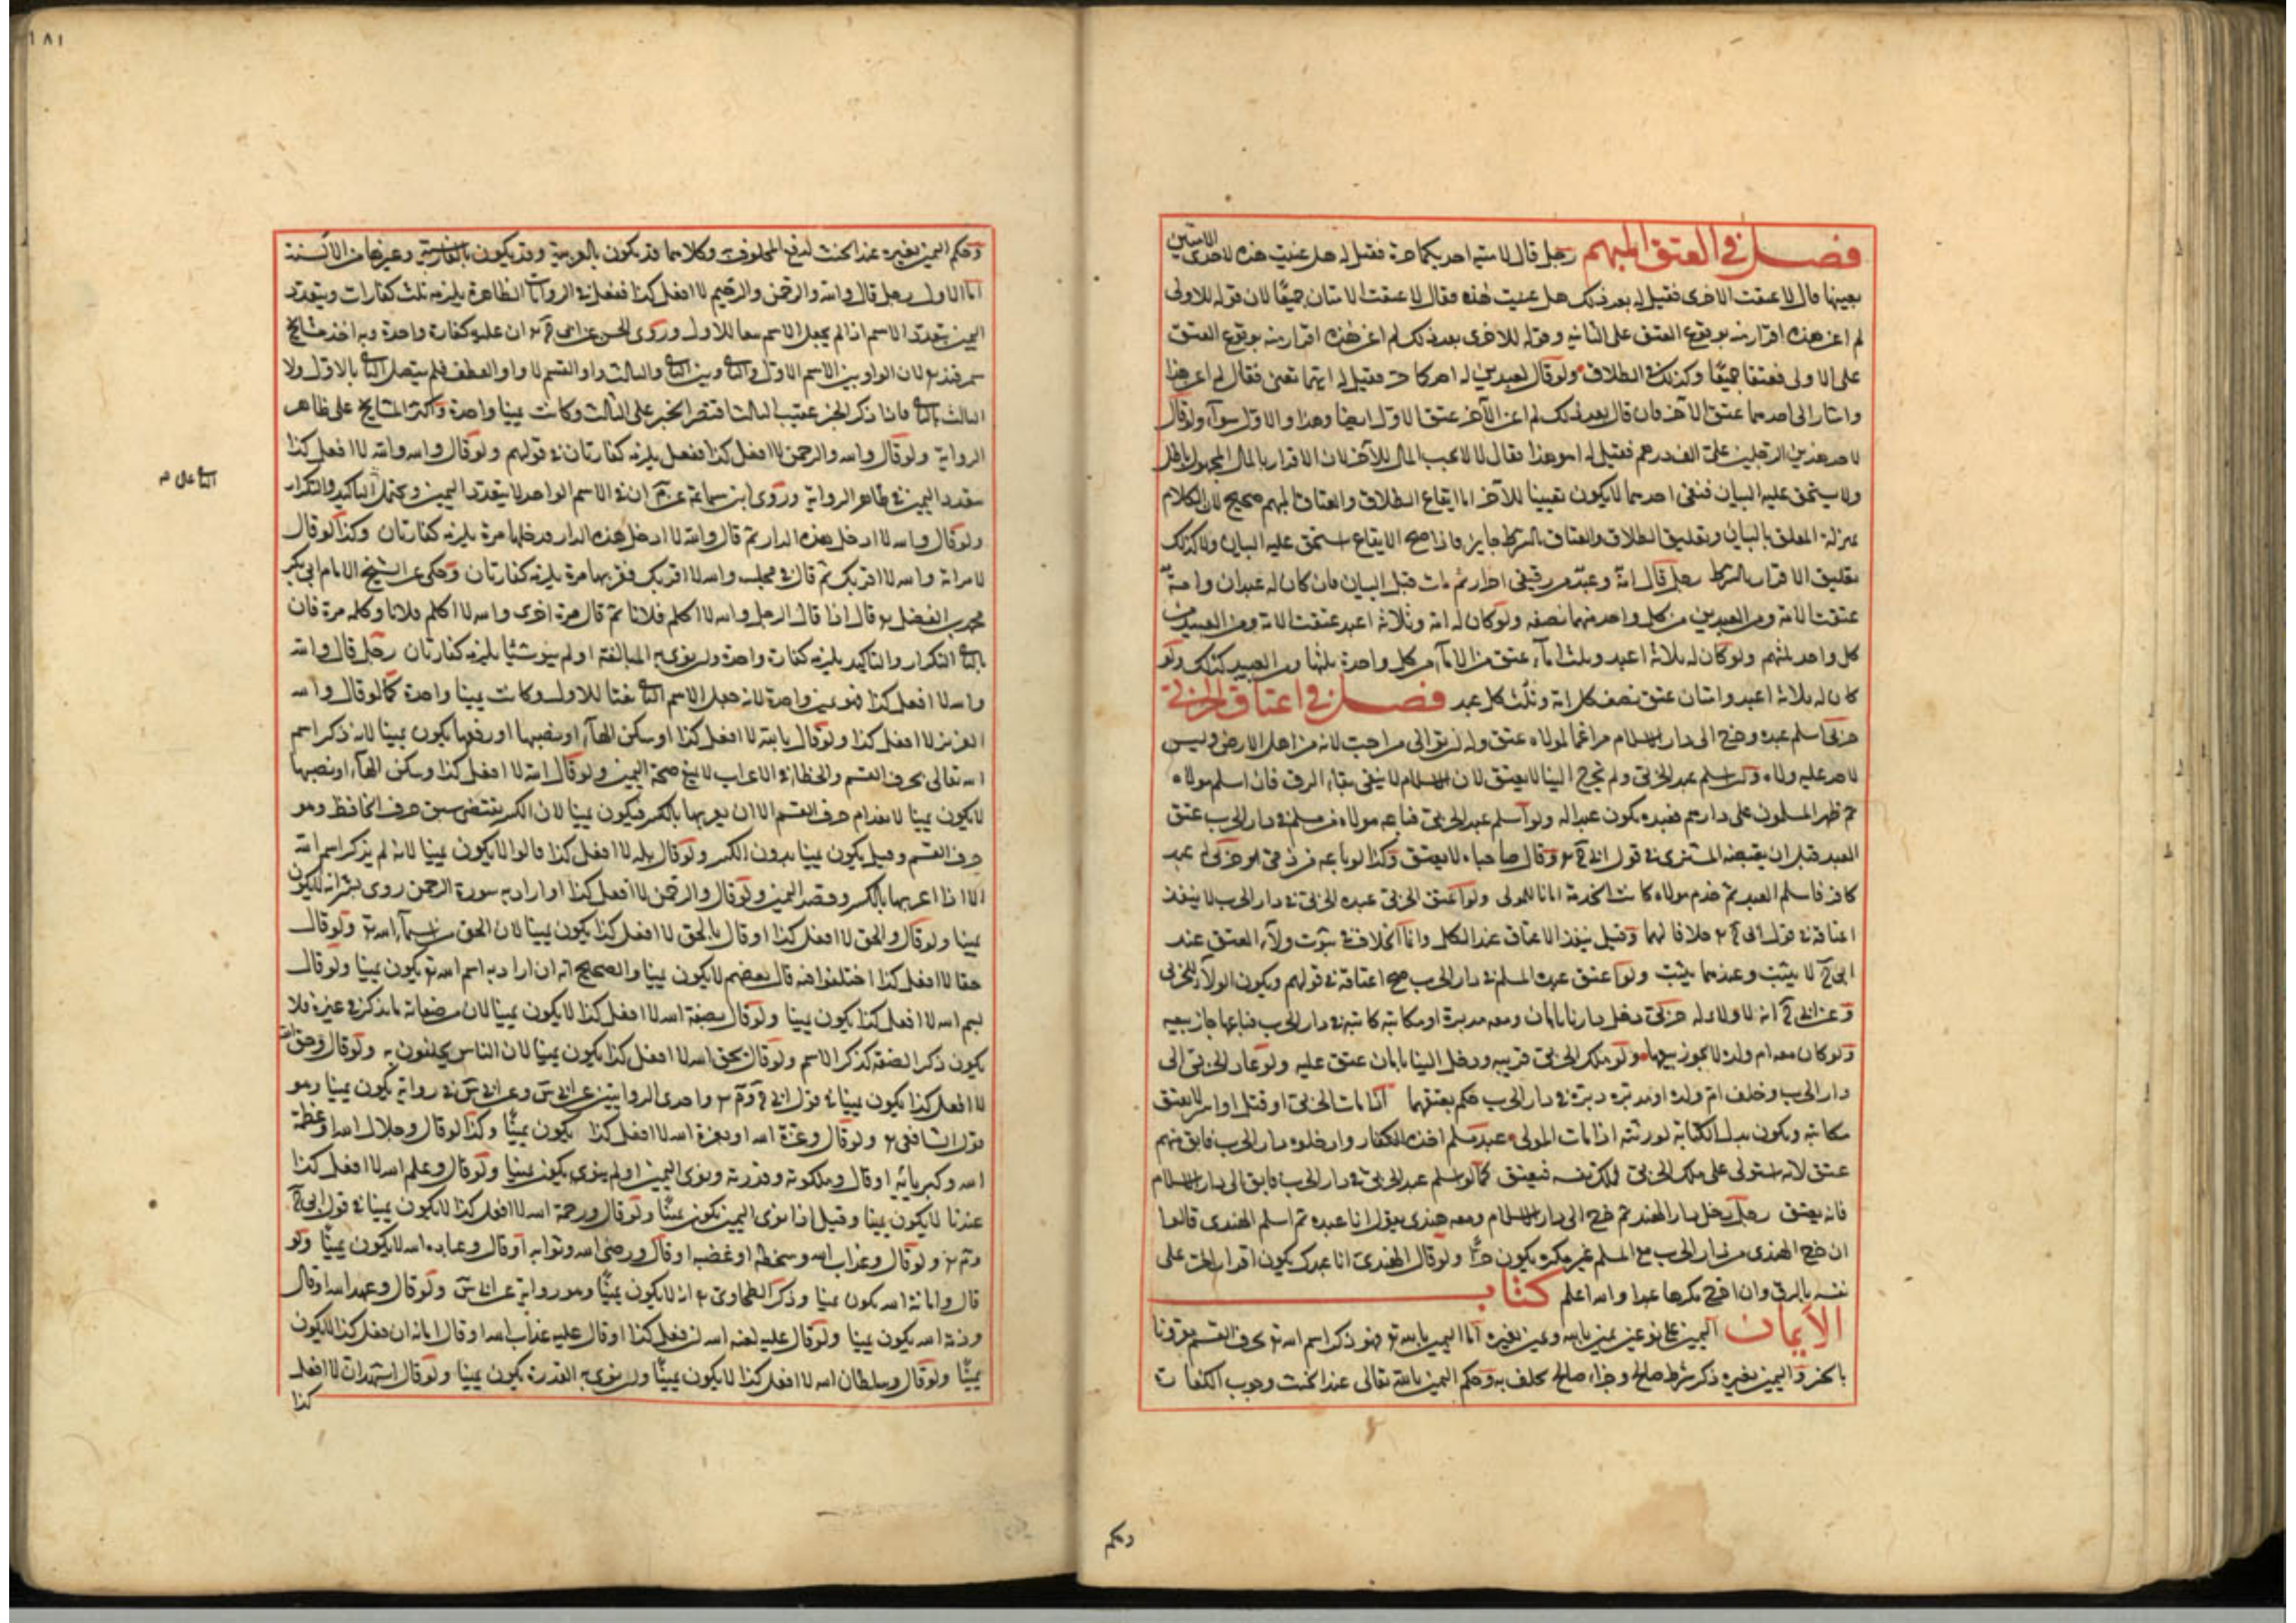 فصل في العتق المبهم رجل قال لامتيه احديكما حرة فقيل له هل عنيت هذه لاحدى الامتين
بعينها قال لا عتقت الاخرى فقيل له بعد ذلك هل عنيت هذه فقال لا عتقت الامتان جميعًا لان قوله للاولى
لم اعن هذه اقرار منه بوقوع العتق على الثانية وقوله للاخرى بعد ذلك لم اعن هذه اقرار منه بوقوع العتق
على الاولى فعتقتا جميعًا وكذلك في الطلاق ولو قال لعبدين له احدكما حر فقيل له ايهما تعني فقال لم اعن هذا
واشار الى احدهما عتق الآخر فان قال بعد ذلك لم اعن الآخر عتق الاول ايضا وهذا والاول سواء ولو قال
لاحد هذين الرجلين عليّ الف درهم فقيل له اهو هذا فقال لا لا يجب المال للآخر لان الاقرار بالمال المجهول باطل
ولا يستحق عليه البيان فنفى احدهما لا يكون تعيينا للآخر اما ايقاع الطلاق والعتاق المبهم صحيح لان الكلام
بمنزلة المعلق بالبيان وتعليق الطلاق والعتاق بالشرط جايز فاذا صح الايقاع استحق عليه البيان ولا كذلك
تعليق الاقرار بالشرط رجل قال امة وعبد من رقيقي احرار ثم مات قبل البيان فان كان له عبدان وامة
عتقت الامة ومن العبدين من كل واحد منهما نصفه ولو كان له امة وثلاثة اعبد عتقت الامة ومن العبيد من
كل واحد ثلثهم ولو كان له ثلاثة اعبد وثلث اماء عتق من الاماء من كل واحدة ثلثها ومن العبيد كذلك ولو
كان له ثلاثة اعبد وامتان عتق نصف كل امة وثلث كل عبد فصل في اعتاق الحربي
حربي اسلم عبده وخرج الى دار الاسلام مراغما لمولاه عتق وله ان يوالي من احب لانه من اهل الارض وليس
لاحد عليه ولاء وان اسلم عبد الحربي ولم يخرج الينا لا يعتق لان الاسلام لا ينفي بقاء الرق فان اسلم مولاه
ثم ظهر المسلمون على دارهم فعبده يكون عبدا له ولو اسلم عبد الحربي فباعه مولاه من مسلم في دار الحرب عتق
العبد قبل ان يقبضه المشتري في قول ابي ح وقال صاحباه لا يعتق وكذا لو باعه من ذمي او حربي عبد
كافر فاسلم العبد ثم خدم مولاه كانت الخدمة امانا للمولى ولو اعتق الحربي عبده الحربي في دار الحرب لا ينفذ
اعتاقه في قول ابي ح خلافا لهما وقيل ينفذ الاعتاق عند الكل وانما الخلاف في ثبوت ولاء العتق عند
ابي ح لا يثبت وعندهما يثبت ولو اعتق عبده المسلم في دار الحرب صح اعتاقه في قولهم ويكون الولاء للحربي
وعن ابي ح انه لا ولاء له حربي دخل دارنا بامان ومعه مدبرة او مكاتبة كاتبه في دار الحرب فباعها جاز بيعه
ولو كان معه ام ولد لا يجوز بيعها ولو ملك الحربي قريبه ودخل الينا بامان عتق عليه ولو عاد الحربي الى
دار الحرب وخلف ام ولده او مدبره دبره في دار الحرب حكم بعتقهما اذا مات الحربي او قتل او اسر لا يعتق
مكاتبه ويكون بدل الكتابة لورثته اذا مات المولى عبد مسلم اخذه الكفار وادخلوه دار الحرب فابق منهم
عتق لانه استولى على ملك الحربي فملك نفسه فيعتق كما لو اسلم عبد الحربي في دار الحرب فابق الى دار الاسلام
فانه يعتق رجل دخل دار الهند ثم خرج الى دار الاسلام ومعه هندي يقول انا عبده ثم اسلم الهندي قالوا
ان خرج الهندي من دار الحرب مع المسلم غير مكره يكون حرًا ولو قال الهندي انا عبدك يكون اقرار الحر على
نفسه بالرق وان اخرج مكرها عبدا والله اعلم كتاب
الأيمان اليمين على نوعين يمين بالله ويمين بغيره اما اليمين بالله تع فهو ذكر اسم الله تع بحرف القسم مقرونا
بالخبر واليمين بغيره ذكر شرط صالح وجزاء صالح يحلف به وحكم اليمين بالله تعالى عند الحنث وجوب الكفارة
وحكم
١٨١
وحكم اليمين بغيره عند الحنث لزوم المحلوف به وكلاهما قد يكون بالعربية وقد يكون بالفارسية وغيرها من الألسنة
اما الاول رجل قال والله والرحمن والرحيم لا افعل كذا ففعل في الروايات الظاهرة يلزمه ثلث كفارات ويتعدد
اليمين بتعدد الاسم اذا لم يجعل الاسم نعتا للاول وروى الحسن عن ابي ح ان عليه كفارة واحدة وبه اخذ مشايخ
سمرقند لان الواو بين الاسم الاول والثاني وبين الثاني والثالث واو القسم لا واو العطف فلم يتصل الثاني بالاول ولا
الثالث بالثاني فاذا ذكر الخبر عقيب الثالث اقتصر الخبر على الثالث وكانت يمينا واحدة واكثر المشايخ على ظاهر
الرواية ولو قال والله والرحمن لا افعل كذا ففعل يلزمه كفارتان في قولهم ولو قال والله والله لا افعل كذا
يتعدد اليمين في ظاهر الرواية وروى ابن سماعة عن م ان في الاسم الواحد لا يتعدد اليمين ويحتمل التاكيد والتكرار
ولو قال والله لا ادخل هذه الدار ثم قال والله لا ادخل هذه الدار فدخلها مرة يلزمه كفارتان وكذا لو قال
لامراته والله لا اقربك ثم قال في مجلس والله لا اقربك فقربها مرة يلزمه كفارتان وحكى عن الشيخ الامام ابي بكر
محمد بن الفضل قال اذا قال الرجل والله لا اكلم فلانا ثم قال مرة اخرى والله لا اكلم فلانا وكلمه مرة فان
بالثاني التكرار والتاكيد يلزمه كفارة واحدة وان نوى به المبالغة او لم ينو شيئا يلزمه كفارتان رجل قال والله
والله لا افعل كذا فهو يمين واحدة لانه جعل الاسم الثاني نعتا للاول وكانت يمينا واحدة كما لو قال والله
العزيز لا افعل كذا ولو قال بالله لا افعل كذا او سكن الهاء او نصبها او رفعها يكون يمينا لانه ذكر اسم
الله تعالى بحرف القسم والخطا في الاعراب لا يمنع صحة اليمين ولو قال الله لا افعل كذا وسكن الهاء او نصبها
لا يكون يمينا لانعدام حرف القسم الا ان يعربها بالكسر فيكون يمينا لان الكسر يقتضي سبق حرف الخافض وهو
حرف القسم وقيل يكون يمينا بدون الكسر ولو قال بله لا افعل كذا قالوا لا يكون يمينا لانه لم يذكر اسم الله
الا اذا اعربها بالكسر وقصد اليمين ولو قال والرحمن لا افعل كذا اواراد به سورة الرحمن روى بشر انه لا يكون
يمينا ولو قال والحق لا افعل كذا او قال بالحق لا افعل كذا يكون يمينا لان الحق من اسماء الله تع ولو قال
حقا لا افعل كذا اختلفوا فيه قال بعضهم لا يكون يمينا والصحيح انه ان اراد به اسم الله تع يكون يمينا ولو قال
بسم الله لا افعل كذا يكون يمينا ولو قال بصفة الله لا افعل كذا لا يكون يمينا لان من صفاته ما يذكر في غيره فلا
يكون ذكر الصفة كذكر الاسم ولو قال بحق الله لا افعل كذا يكون يمينا لان الناس يحلفون به ولو قال وحق الله
لا افعل كذا لا يكون يمينا في قول ابي ح وم واحدى الروايتين عن ابي س وعن ابي س في رواية يكون يمينا وهو
قول الشافعي ولو قال وعزة الله او بعزة الله لا افعل كذا يكون يمينًا وكذا لو قال وجلال الله او عظمة
الله وكبريائه او قال وملكوته وقدرته ونوى اليمين او لم ينوى يكون يمينا ولو قال وعلم الله لا افعل كذا
عندنا لا يكون يمينا وقيل اذا نوى اليمين يكون يمينًا ولو قال ورحمة الله لا افعل كذا لا يكون يمينا في قول ابي ح
وم ولو قال وعذاب الله وسخطه او غضبه او قال ورضى الله وثوابه او قال وعباده الله لا يكون يمينًا ولو
قال وامانة الله يكون يمينا وذكر الطحاوي انه لا يكون يمينًا وهو رواية عن ابي س ولو قال وعهد الله او قال
وذمة الله يكون يمينا ولو قال عليه لعنة الله ان فعل كذا او قال عليه عذاب الله او قال امانة ان فعل كذا لا يكون
يمينًا ولو قال وسلطان الله لا افعل كذا لا يكون يمينًا وان نوى به القدرة يكون يمينا ولو قال اشهد ان لا افعل
كذا